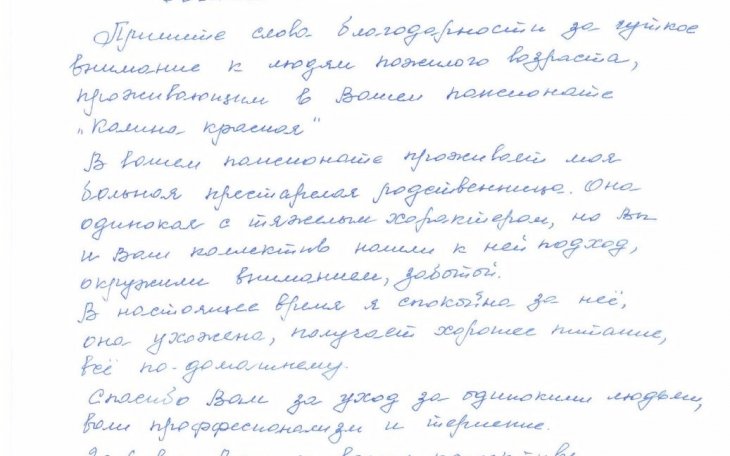 Примите слова благодарности за чуткое
внимание к людям пожилого возраста,
проживающим в Вашем пансионате
„Калина красная"
В вашем пансионате проживает моя
больная престарелая родственница. Она
одинокая с тяжелым характером, но Вы
и Ваш коллектив нашли к ней подход,
окружили вниманием, заботой.
В настоящее время я спокойна за неё,
она ухожена, получает хорошее питание,
всё по-домашнему.
Спасибо Вам за уход за одинокими людьми,
ваш профессионализм и терпение.